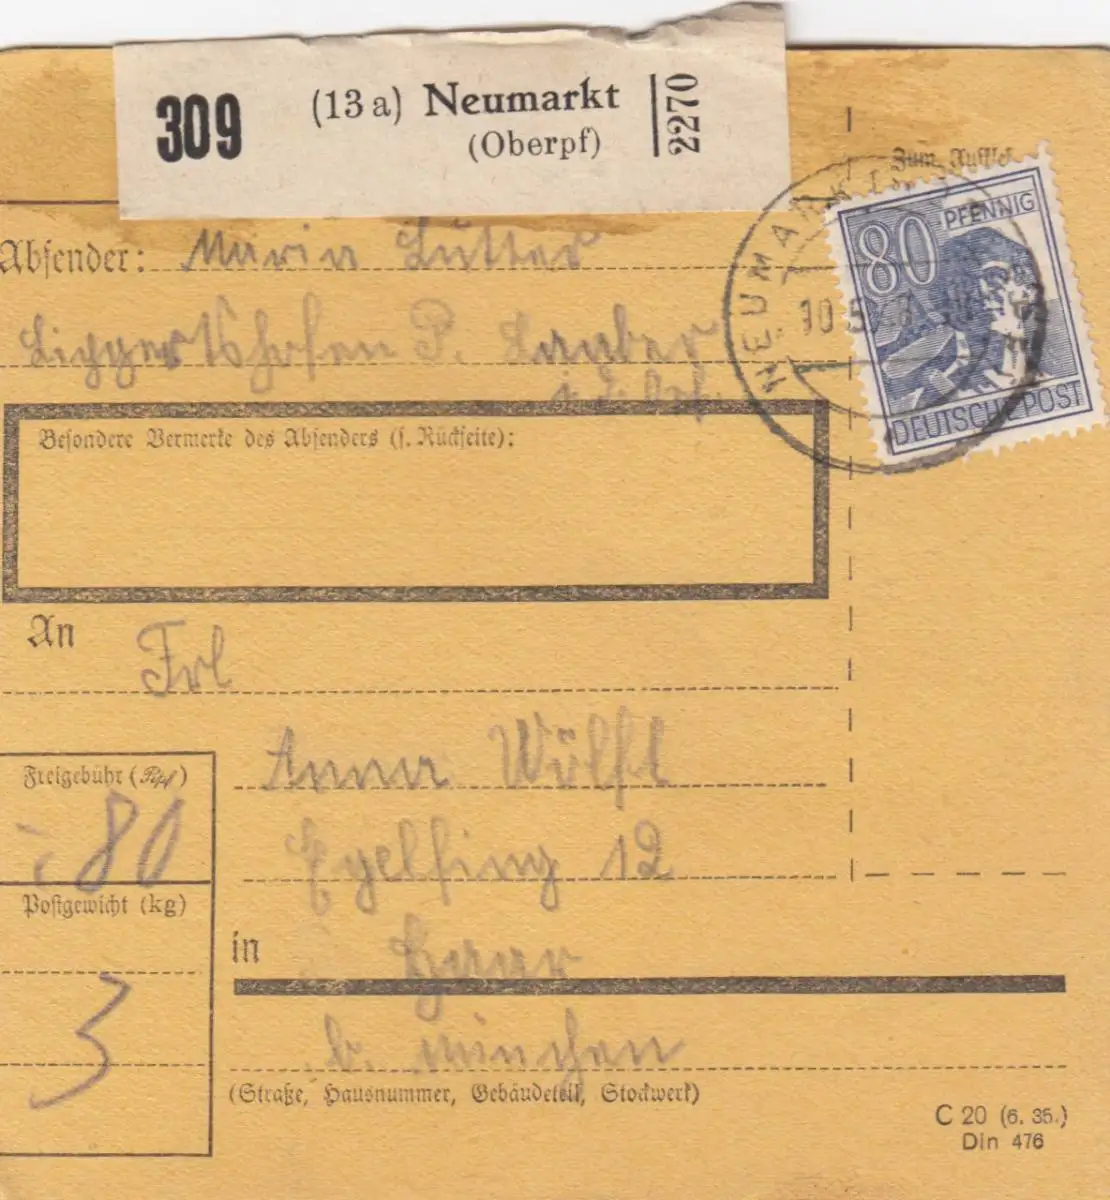 309 (13a) Neumarkt
(Oberpf)
2270
Zum Aufkleb
80 PFENNIG
DEUTSCHE POST
NEUMARKT
10.5.
Absender: Maria Lutter
Liggertshofen P. Lauber
i. d. Opf.
Besondere Vermerke des Absenders (s. Rückseite):
An Frl
Anna Wölfl
Egelfing 12
in Haar
b. München
(Straße, Hausnummer, Gebäudeteil, Stockwerk)
Freigebühr (Rpf)
80
Postgewicht (kg)
3
C 20 (6. 35.)
Din 476